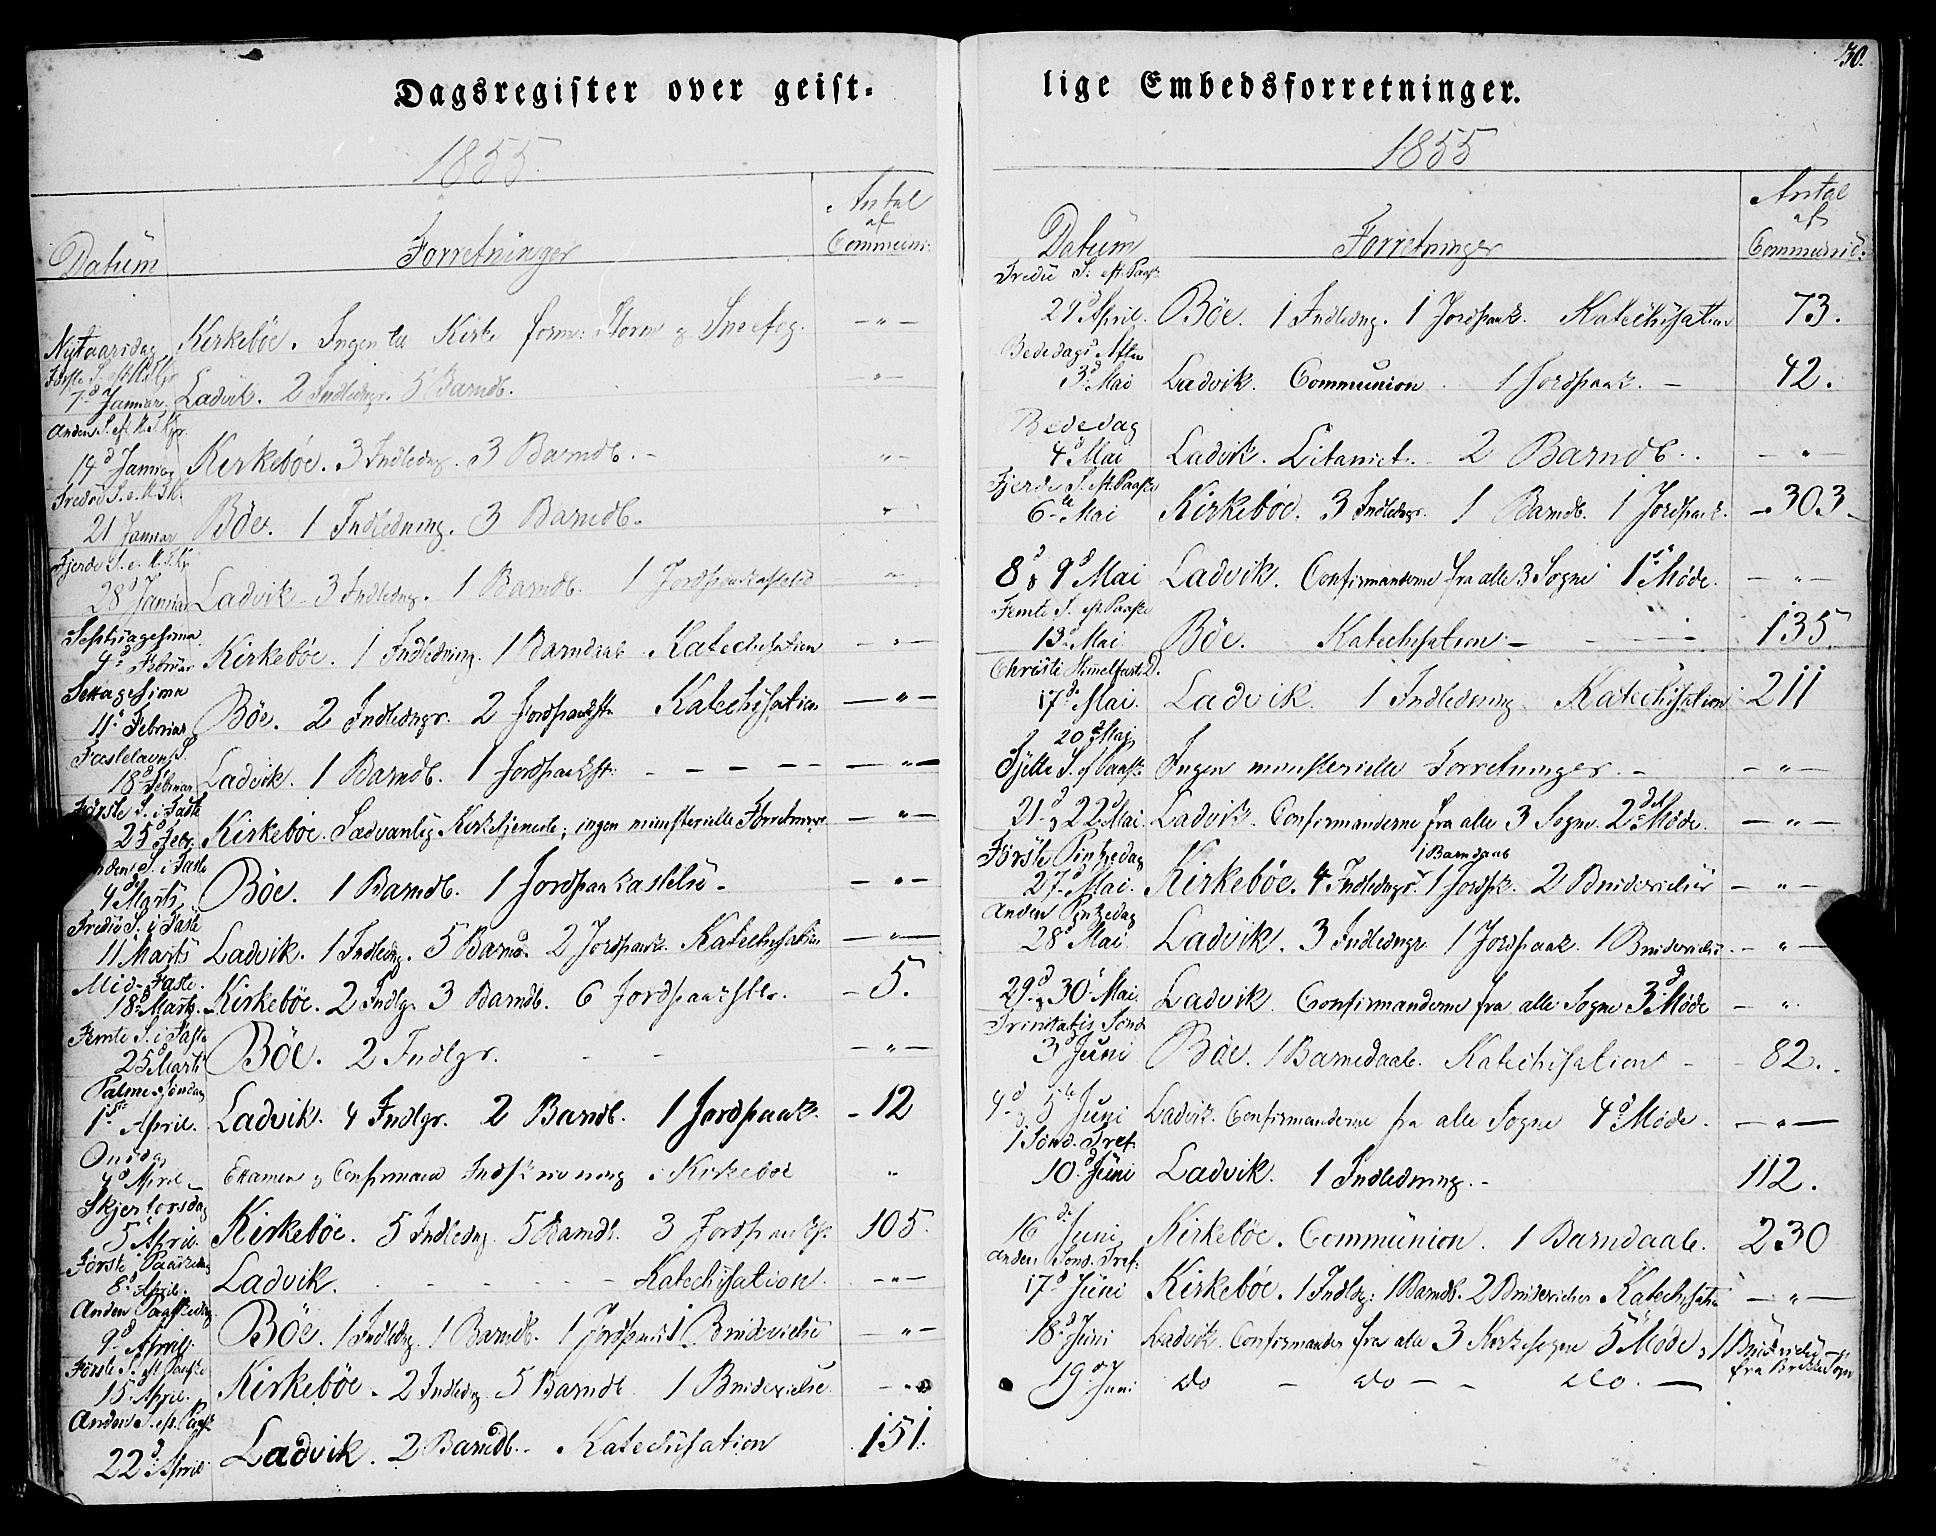 Dagsregister over geist-
1855.
Datum
Forretninger
Antal
af
Communi:
Nytaarsdag Kirkebøe. Ingen til Kirke form: Storm og Sneefog. — " —
Første S. eft. H.3.Kgr.
7d Januar. Ladvik. 2 Indledngr. 5 Barndb. " —
Anden S. ef. H.3.Kgr.
14d Januar Kirkebøe. 3 Indledng. 3 Barndb. — " —
Tredie S. e. H.3.K.
21 Januar Böe. 1 Indledning. 3 Barndb. "
Fjerde S. e. H.3.Kg.
28d Januar Ladvik 3 Indledng. 1 Barndb. 1 Jordpaakastelse " —
Septuagesima
4d Februar Kirkebøe. 1 Indledning. 1 Barndaab Katechisation — " —
Sexagesima
11d Februar Böe. 2 Indledngr. 2 Jordpaakst. Katechisation — " —
Fastelavns S.
18d Februar Ladvik. 1 Barndb. 1 Jordpaakst: — " —
Første S. i Faste
25d Febr. Kirkebøe. Sædvanlig Kirketjeneste; ingen ministerielle Forretninger — " —
Anden S. i Faste
4de Marts Böe. 1 Barndb. 1 Jordpaakastelse. — " —
Tredie S. i Faste
11 Marts Ladvik. 1 Indledng. 5 Barnd. 2 Jordpaak. Katechisation — " —
Mid-Faste.
18d Marts. Kirkebøe. 2 Indlgr 3 Barndb. 6 Jordpaakstlr. — 5.
Femte S. i Faste
25d Marts Böe. 2 Indlgr. — " —
Palmesøndag
1ste April. Ladvik. 4 Indlgr. 2 Barndb. 1 Jordpaak. — 12
Onsdag
4d April — Examen og Confirmand Indskrivning i Kirkeböe "
Skjertorsdag
5 April. Kirkebøe. 5 Indledng. 5 Barndb. 3 Jordpaaksp. 105.
Første Paaskedag
8d April. Ladvik. Katechisation. — " —
Anden Paaskedag
9d April. Böe. 1 Indledng. 1 Barndb. 1 Jordpaak 1 Brudevielse — " —
Første S. ef. Paaske
15 April. Kirkebøe. 2 Indledng 5 Barndb. 1 Brudevielse. — "
Anden S. eft. Paask
22d April Ladvik. 2 Barndb. Katechisation 151.
30.
lige Embedsforretninger.
1855
Datum
Forretninger
Antal
af
Communic.
Tredie S. eft. Paask.
29d April. Böe. 1 Indledng. 1 Jordpaak. Katechisation 73.
Bededags Aften
3d Mai Ladvik. Communion. 1 Jordpaak. — 42.
Bededag
4d Mai Ladvik. Litaniet. 2 Barndb. — " —
Fjerde S. eft. Paaske
6te Mai Kirkebøe. 3 Indledngr. 1 Barndb. 1 Jordpaak. — 303 —
8d & 9d Mai Ladvik. Confirmanderne fra alle 3 Sogne 1ste Møde. — " —
Femte S. eft. Paaske
13d Mai. Böe. Katechisation — 135.
Christi Himmelfarts D.
17de Mai. Ladvik 1 Indledning Katechisation 211
20d Mai
Sjette S. ef Paask. Ingen ministerielle Forretninger. — — " —
21d & 22d Mai. Ladvik. Confirmanderne fra alle 3 Sogne 2det Møde. — " —
Første Pintsedag 1 Barndaab
27d Mai. Kirkebøe. 4 Indledngr. 1 Jordpk. 2 Brudevielser — " —
Anden Pintsedag
28d Mai. Ladvik. 3 Indledngr. 1 Jordpaak. 1 Brudevielse. — " —
29d & 30d Mai. Ladvik Confirmanderne fra alle Sogne 3d Møde — "
Trinitatis Sønd.
3d Juni Böe. 1 Barnedaab. Katechisation — 82.
4d & 5te Juni Ladvik. Confirmanderne fra alle Sogne 4d Møde. — " —
1 Sønd. Tref.
10d Juni Ladvik. 1 Indledning. — 112.
16de Juni Kirkebøe. Communion. 1 Barndaab. 230
Anden Sønd. Tref.
17d Juni Kirkebøe. 1 Indldg: 1 Barndb. 2 Brudevielser Katechisatn — " —
18d Juni Ladvik. Confirmander fra alle 3 Kirkesogne 5d Møde, 1 Brudevielse
fra Brekke Sogn
19d Juni do — do — — do. —